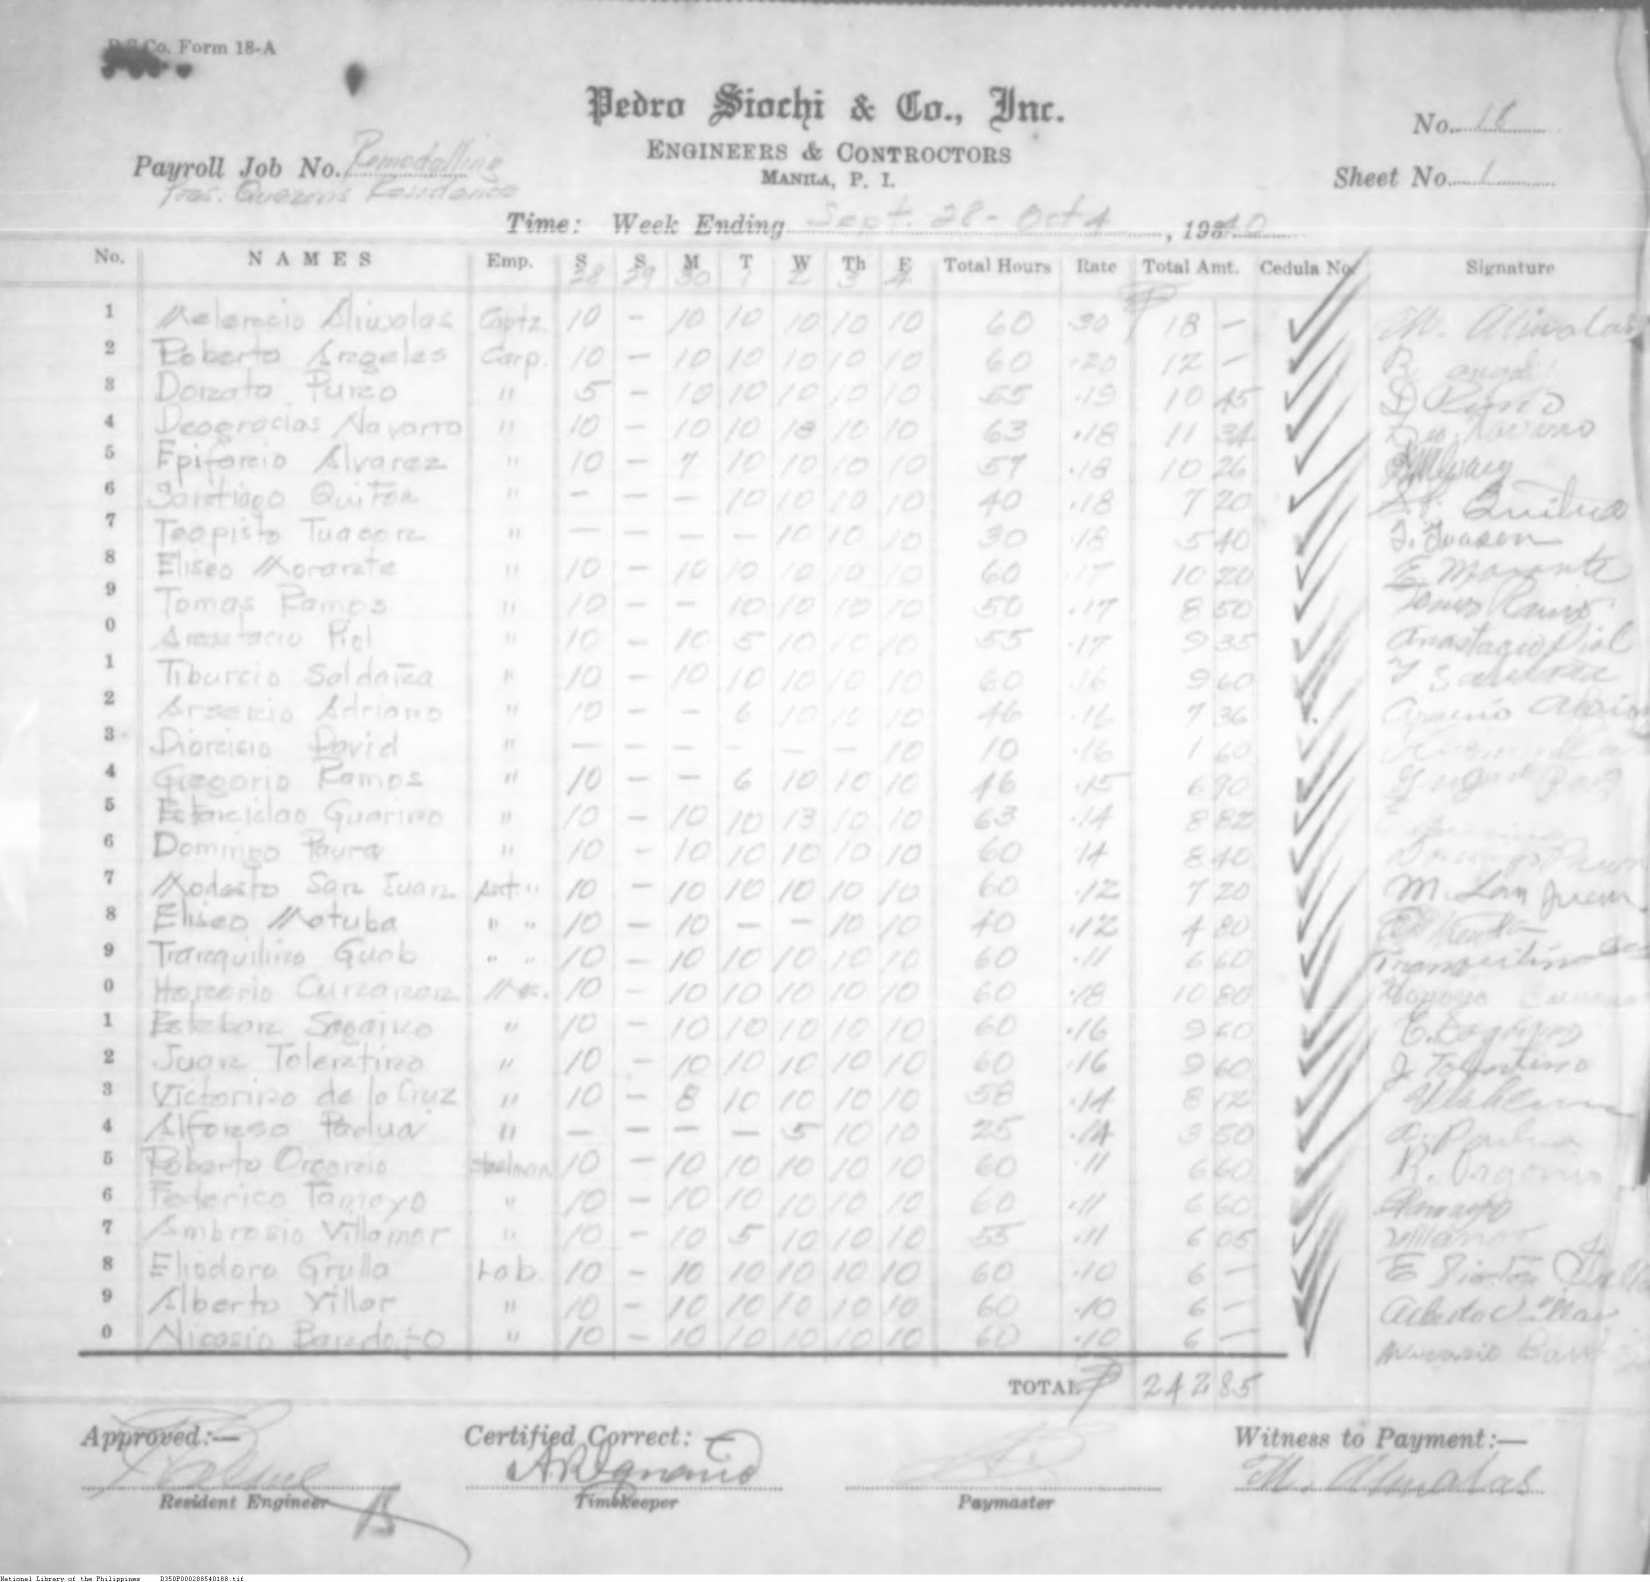 P S Co. Form 18-A
Pedro Siochi & Co., Inc.
No. 18
ENGINEERS & CONTROCTORS
Payroll Job No. Remodelling
MANILA, P. I.
Sheet No. 1
Pres. Quezon's Residence
Time: Week Ending Sept. 28 - Oct 4, 1940
No. NAMES Emp. S S M T W Th F Total Hours Rate Total Amt. Cedula No. Signature
28 29 30 1 2 3 4
1 Melencio Aliwalas Cptz. 10 - 10 10 10 10 10 60 .30 ₱ 18 - M. Aliwalas
2 Roberto Angeles Carp. 10 - 10 10 10 10 10 60 .20 12 - R.
3 Donato Punzo " 5 - 10 10 10 10 10 55 .19 10 45
4 Deogracias Navarro " 10 - 10 10 13 10 10 63 .18 11 34 Navarro
5 Epifancio Alvarez " 10 - 7 10 10 10 10 57 .18 10 26
6 Santiago " - - - 10 10 10 10 40 .18 7 20
7 Teopisto Tuason " - - - - 10 10 10 30 .18 5 40 T. Tuason
8 Eliseo Morante " 10 - 10 10 10 10 10 60 .17 10 20 E. Morante
9 Tomas Ramos " 10 - - 10 10 10 10 50 .17 8 50 Tomas Ramos
0 Anastacio Piol " 10 - 10 5 10 10 10 55 .17 9 35 Anastacio Piol
1 Tiburcio Saldaña " 10 - 10 10 10 10 10 60 .16 9 60 T Saldaña
2 Arsenio Adriano " 10 - - 6 10 10 10 46 .16 7 36 Arsenio
3 Dionicio David " - - - - - - 10 10 .16 1 60
4 Gregorio Ramos " 10 - - 6 10 10 10 46 .15 6 90
5 Estanislao Guarino " 10 - 10 10 13 10 10 63 .14 8 82
6 Domingo Paura " 10 - 10 10 10 10 10 60 .14 8 40 Domingo
7 Modesto San Juan Ast " 10 - 10 10 10 10 10 60 .12 7 20 M. San Juan
8 Eliseo Matuba " " 10 - 10 - - 10 10 40 .12 4 80
9 Tranquilino Guab " " 10 - 10 10 10 10 10 60 .11 6 60 Tranquilino
0 Honorio Cunanan 10 - 10 10 10 10 10 60 .18 10 80
1 Esteban Sagaino " 10 - 10 10 10 10 10 60 .16 9 60
2 Juan Tolentino " 10 - 10 10 10 10 10 60 .16 9 60 J. Tolentino
3 Victorino de la Cruz " 10 - 8 10 10 10 10 58 .14 8 12
4 Alfonso Padua " - - - - 5 10 10 25 .14 3 50 A. Padua
5 Roberto Organio Steelman 10 - 10 10 10 10 10 60 .11 6 60 R. Organio
6 Federico Tamayo " 10 - 10 10 10 10 10 60 .11 6 60
7 Ambrosio Villamor " 10 - 10 5 10 10 10 55 .11 6 05
8 Eliodoro Grulla Lab. 10 - 10 10 10 10 10 60 .10 6 -
9 Alberto Villar " 10 - 10 10 10 10 10 60 .10 6 - Alberto Villar
0 Nicasio " 10 - 10 10 10 10 10 60 .10 6 -
TOTAL ₱ 242 85
Approved:—
Certified Correct:—
Witness to Payment:—
M. Aliwalas
Resident Engineer
Timekeeper
Paymaster
National Library of the Philippines D350P000208540188.tif